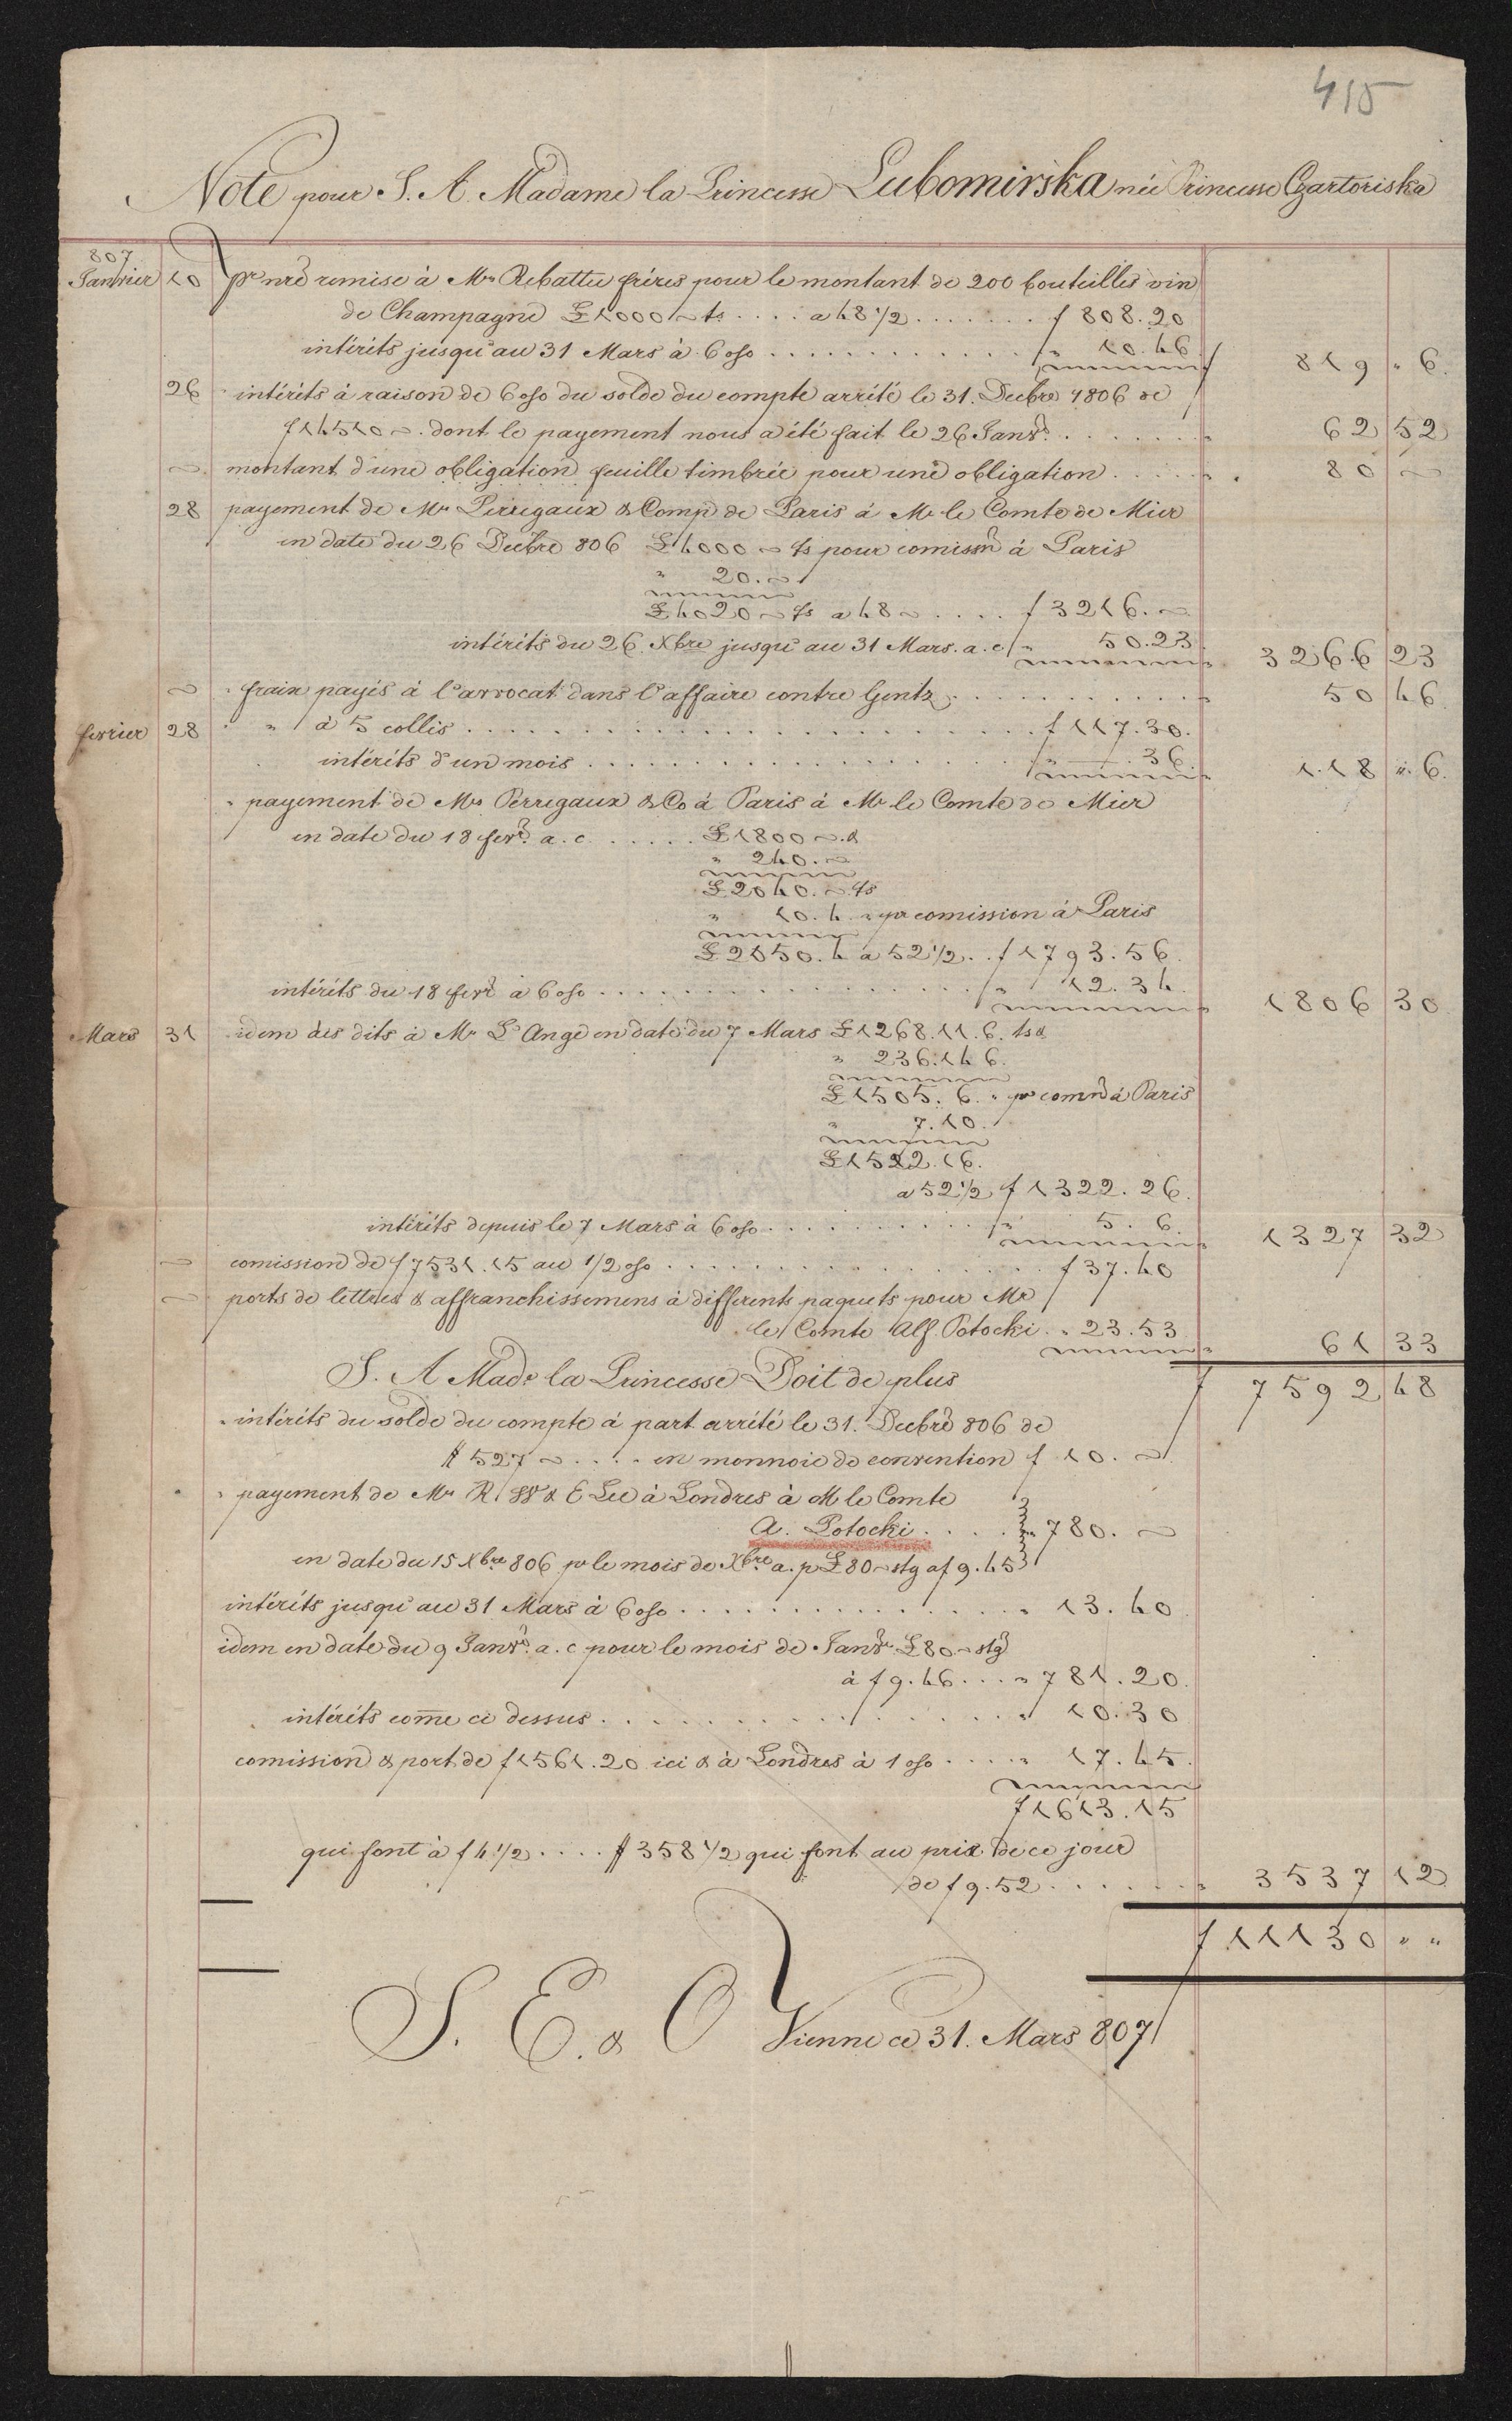 415
Note pour S. A. Madame la Princesse Lubomirska née Princesse Czartoriska
807
Janvier 10 pr nre remise à Mrs Rebattu fréres pour le montant de 200 bouteilles vin
de Champagne £ 1000 ~ ts .... a 48 1/2 ....... f 808.20
intéréts jusqu'au 31 Mars à 6 o/o ............ " 10.46 f 819 " 6.
26 " intéréts à raison de 6 o/o du solde du compte arrété le 31. Decbre 1806 de
f 14510 ~. dont le payement nous a été fait le 26 Janvr. ....... " 62 52
~ montant d'une obligation feuille timbrée pour une obligation ..... " 80 ~
28 payement de Mrs Perregaux & Comp de Paris à Mr le Comte de Mier
en date du 26 Decbre 806 £ 4000 ~ ts pour comissn à Paris
" 20. ~
£ 4020 ~ ts a 48 ~ .... f 3216. ~
intéréts du 26. Xbre jusqu'au 31 Mars. a. c. " 50.23 " 3266 23
~ " fraix payés à l'avocat dans l'affaire contre Gentz .......... " 50 46
fevrier 28 " " à 5 collis ........................ f 117.30.
intéréts d'un mois ................... " — . 36. " 118 " 6.
" payement de Mrs Perregaux & Co à Paris à Mr le Comte de Mier
en date du 18 fevr. a. c. ..... £ 1800 ~. &
" 240. ~
£ 2040. ~ ts
" 10. 4 " pr comission à Paris
£ 2050. 4 a 52 1/2 .. f 1793. 56.
intéréts du 18 fevr à 6 o/o ................ " 12. 34. " 1806 30
Mars 31 idem des dits à Mr L'Ange en date du 7 Mars £ 1268. 11. 6. ts &
" 236. 14 6.
£ 1505. 6. " pr comn à Paris
" 7. 10.
£ 1512. 16.
a 52 1/2 f 1322. 26.
intéréts depuis le 7 Mars à 6 o/o .......... " 5. 6. " 1327 32
~ comission de f 7531. 15 au 1/2 o/o ................. f 37. 40
~ ports de lettres & affranchissemens à differents paquets pour Mr
le Comte Alf. Potocki. " 23. 53 " 61 33
S. A Made la Princesse Doit de plus f 7592 48
" intéréts du solde du compte à part arrété le 31. Decbre 806 de
# 527 ~ .... en monnoie de convention f 10. ~
" payement de Mrs R W & E Lee à Londres à M le Comte
A. Potocki ..... " 780. ~
en date du 15 Xbre 806 pr le mois de Xbre a. p £ 80 ~ stg a f 9. 45
intéréts jusqu'au 31 Mars à 6 o/o ................ " 13. 40
idem en date du 9 Janvr. a. c pour le mois de Janvr £ 80 ~ stg
à f 9. 46 ... " 781. 20.
intéréts come ci dessus .................... " 10. 30
comission & port de f 1561. 20 ici & à Londres à 1 o/o .... " 17. 45.
f 1613. 15
qui font à f 4 1/2 .... # 358 1/2 qui font au prix de ce jour
de f 9. 52 ....... " 3537 12
f 11130 " "
S. E. & O Vienne ce 31. Mars 807